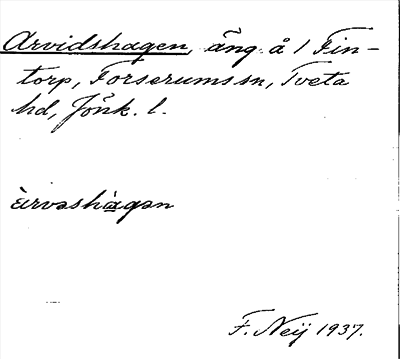 Arvidshagen, äng å 1 Fin-
torp, Forserums sn, Tveta
hd, Jönk. l.
àrvəshàgən
F. Neij 1937.